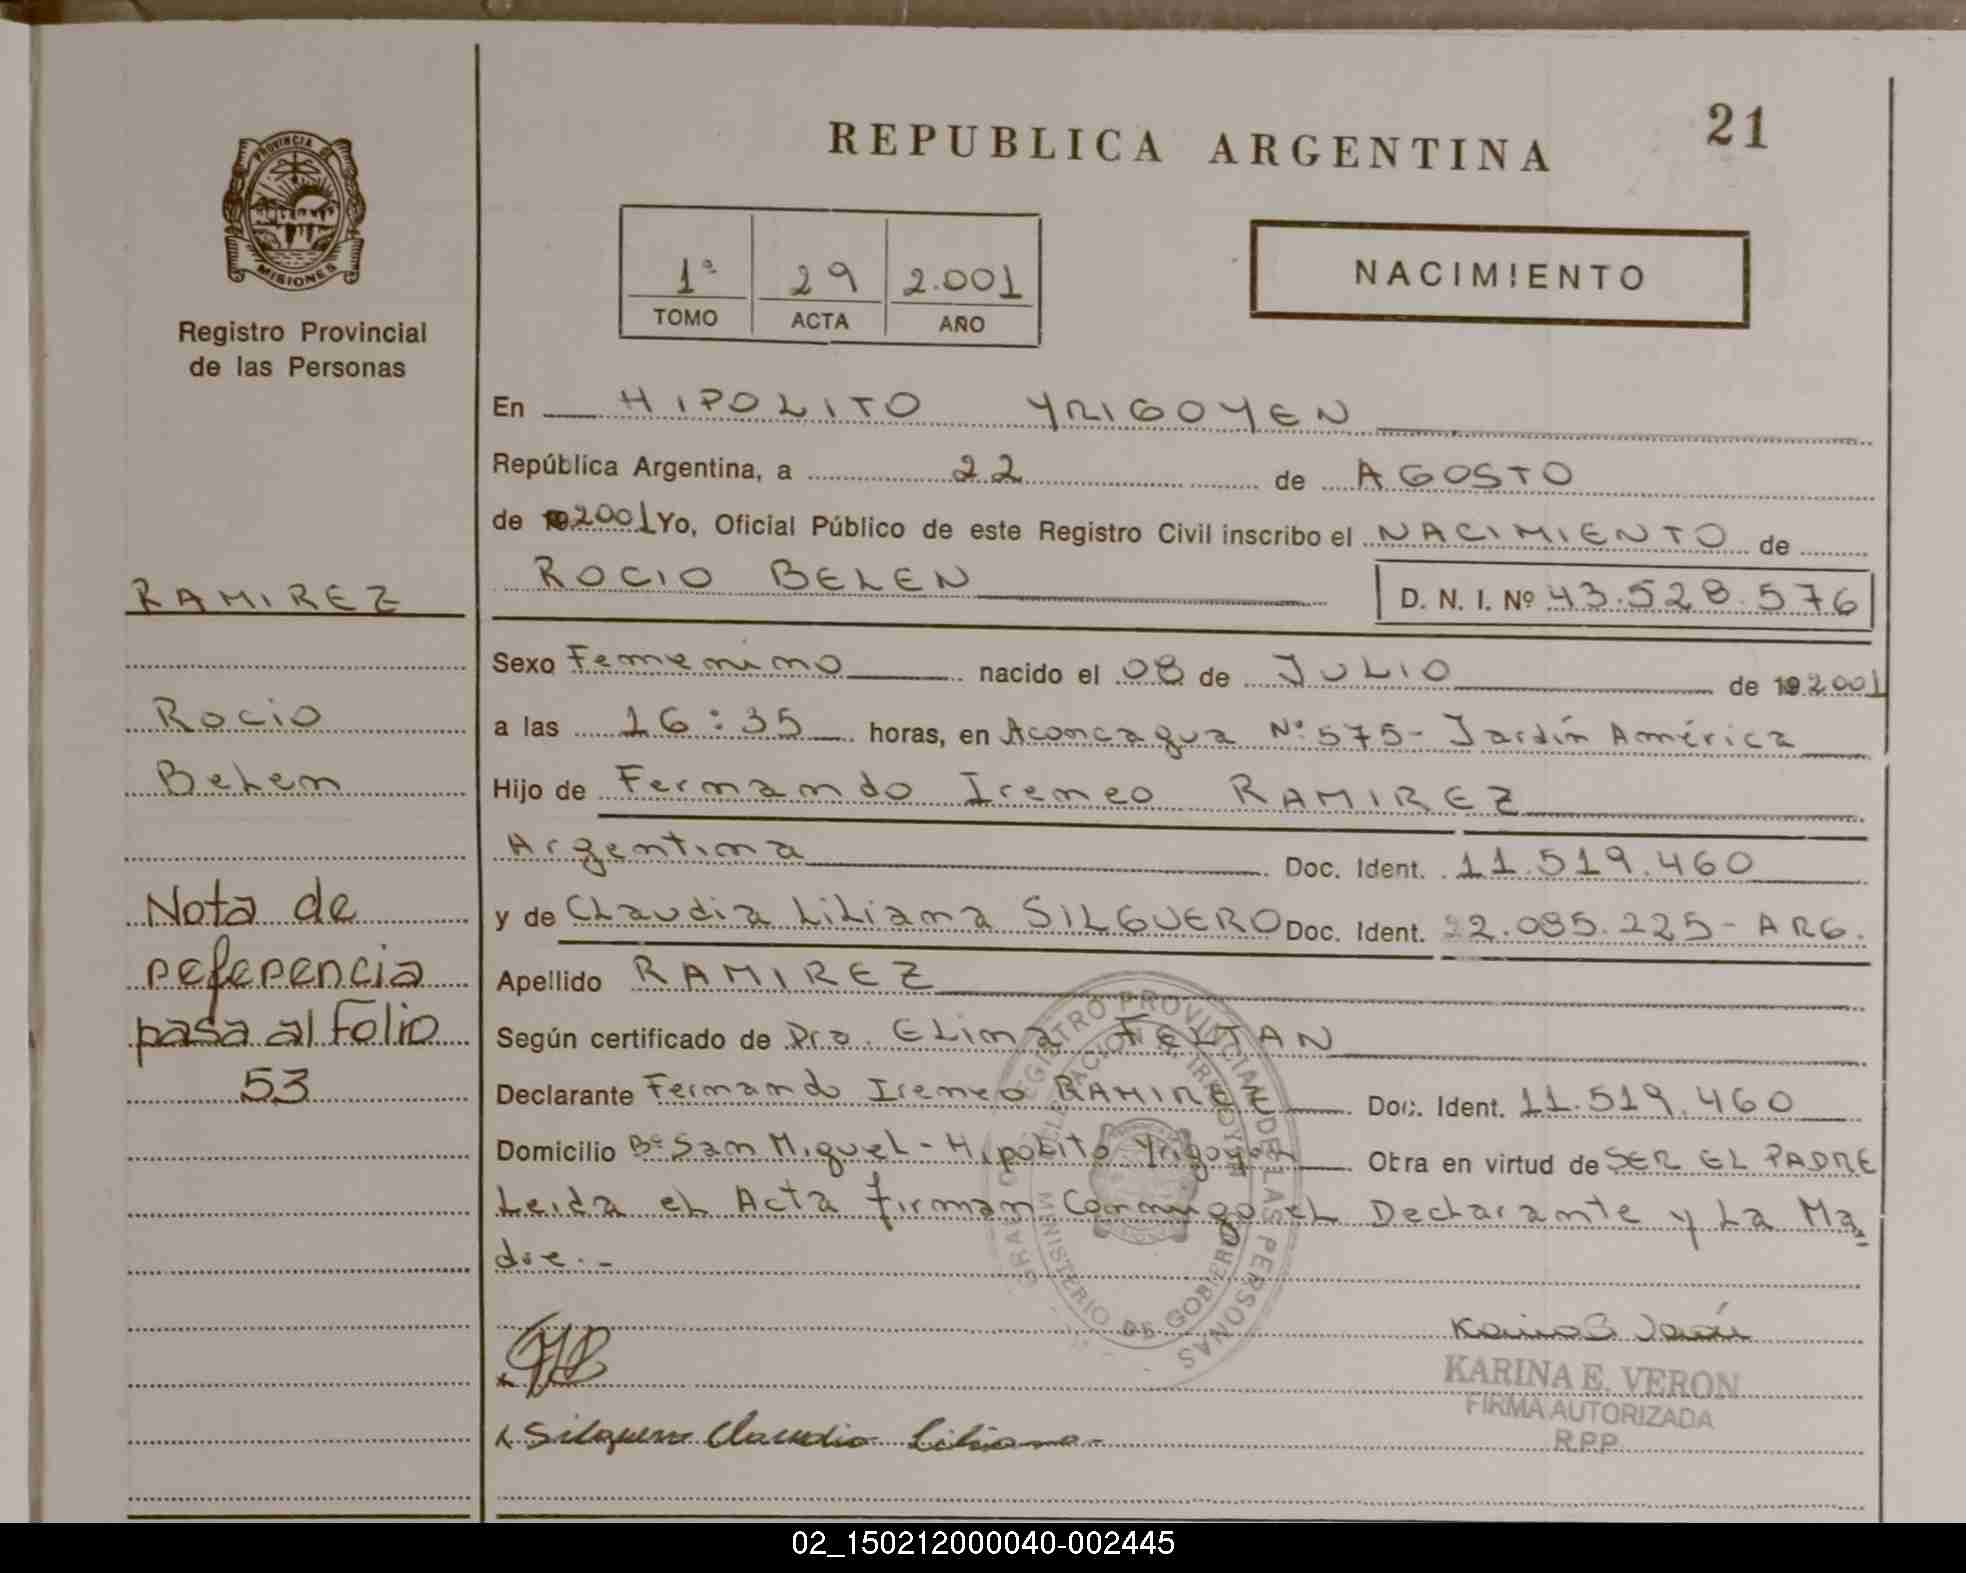 21
REPUBLICA ARGENTINA
PROVINCIA DE
MISIONES
Registro Provincial
de las Personas
1ª 29 2.001
TOMO ACTA AÑO
NACIMIENTO
En HIPOLITO YRIGOYEN
República Argentina, a 22 de AGOSTO
de 19 2001 Yo, Oficial Público de este Registro Civil inscribo el NACIMIENTO de
ROCIO BELEN D. N. I. Nº 43.528.576
RAMIREZ
Rocio
Belen
Nota de
referencia
pasa al Folio
53
Sexo Femenino nacido el 08 de JULIO de 19 2.001
a las 16:35 horas, en Aconcagua Nº 575- Jardín América
Hijo de Fernando Ireneo RAMIREZ
Argentina Doc. Ident. 11.519.460
y de Claudia Liliana SILGUERO Doc. Ident. 22.085.225- ARG.
Apellido RAMIREZ
Según certificado de Dra. Elina FEYTAN
Declarante Fernando Ireneo RAMIREZ Doc. Ident. 11.519.460
Domicilio Bº San Miguel - Hipolito Yrigoyen Otra en virtud de SER EL PADRE
Leida el Acta firman conmigo el Declarante y La Ma
dre.-
REGISTRO PROVINCIAL DE LAS PERSONAS
MINISTERIO DE GOBIERNO
KARINA E. VERON
FIRMA AUTORIZADA
R.P.P.
Silguero Claudia Liliana
02_150212000040-002445